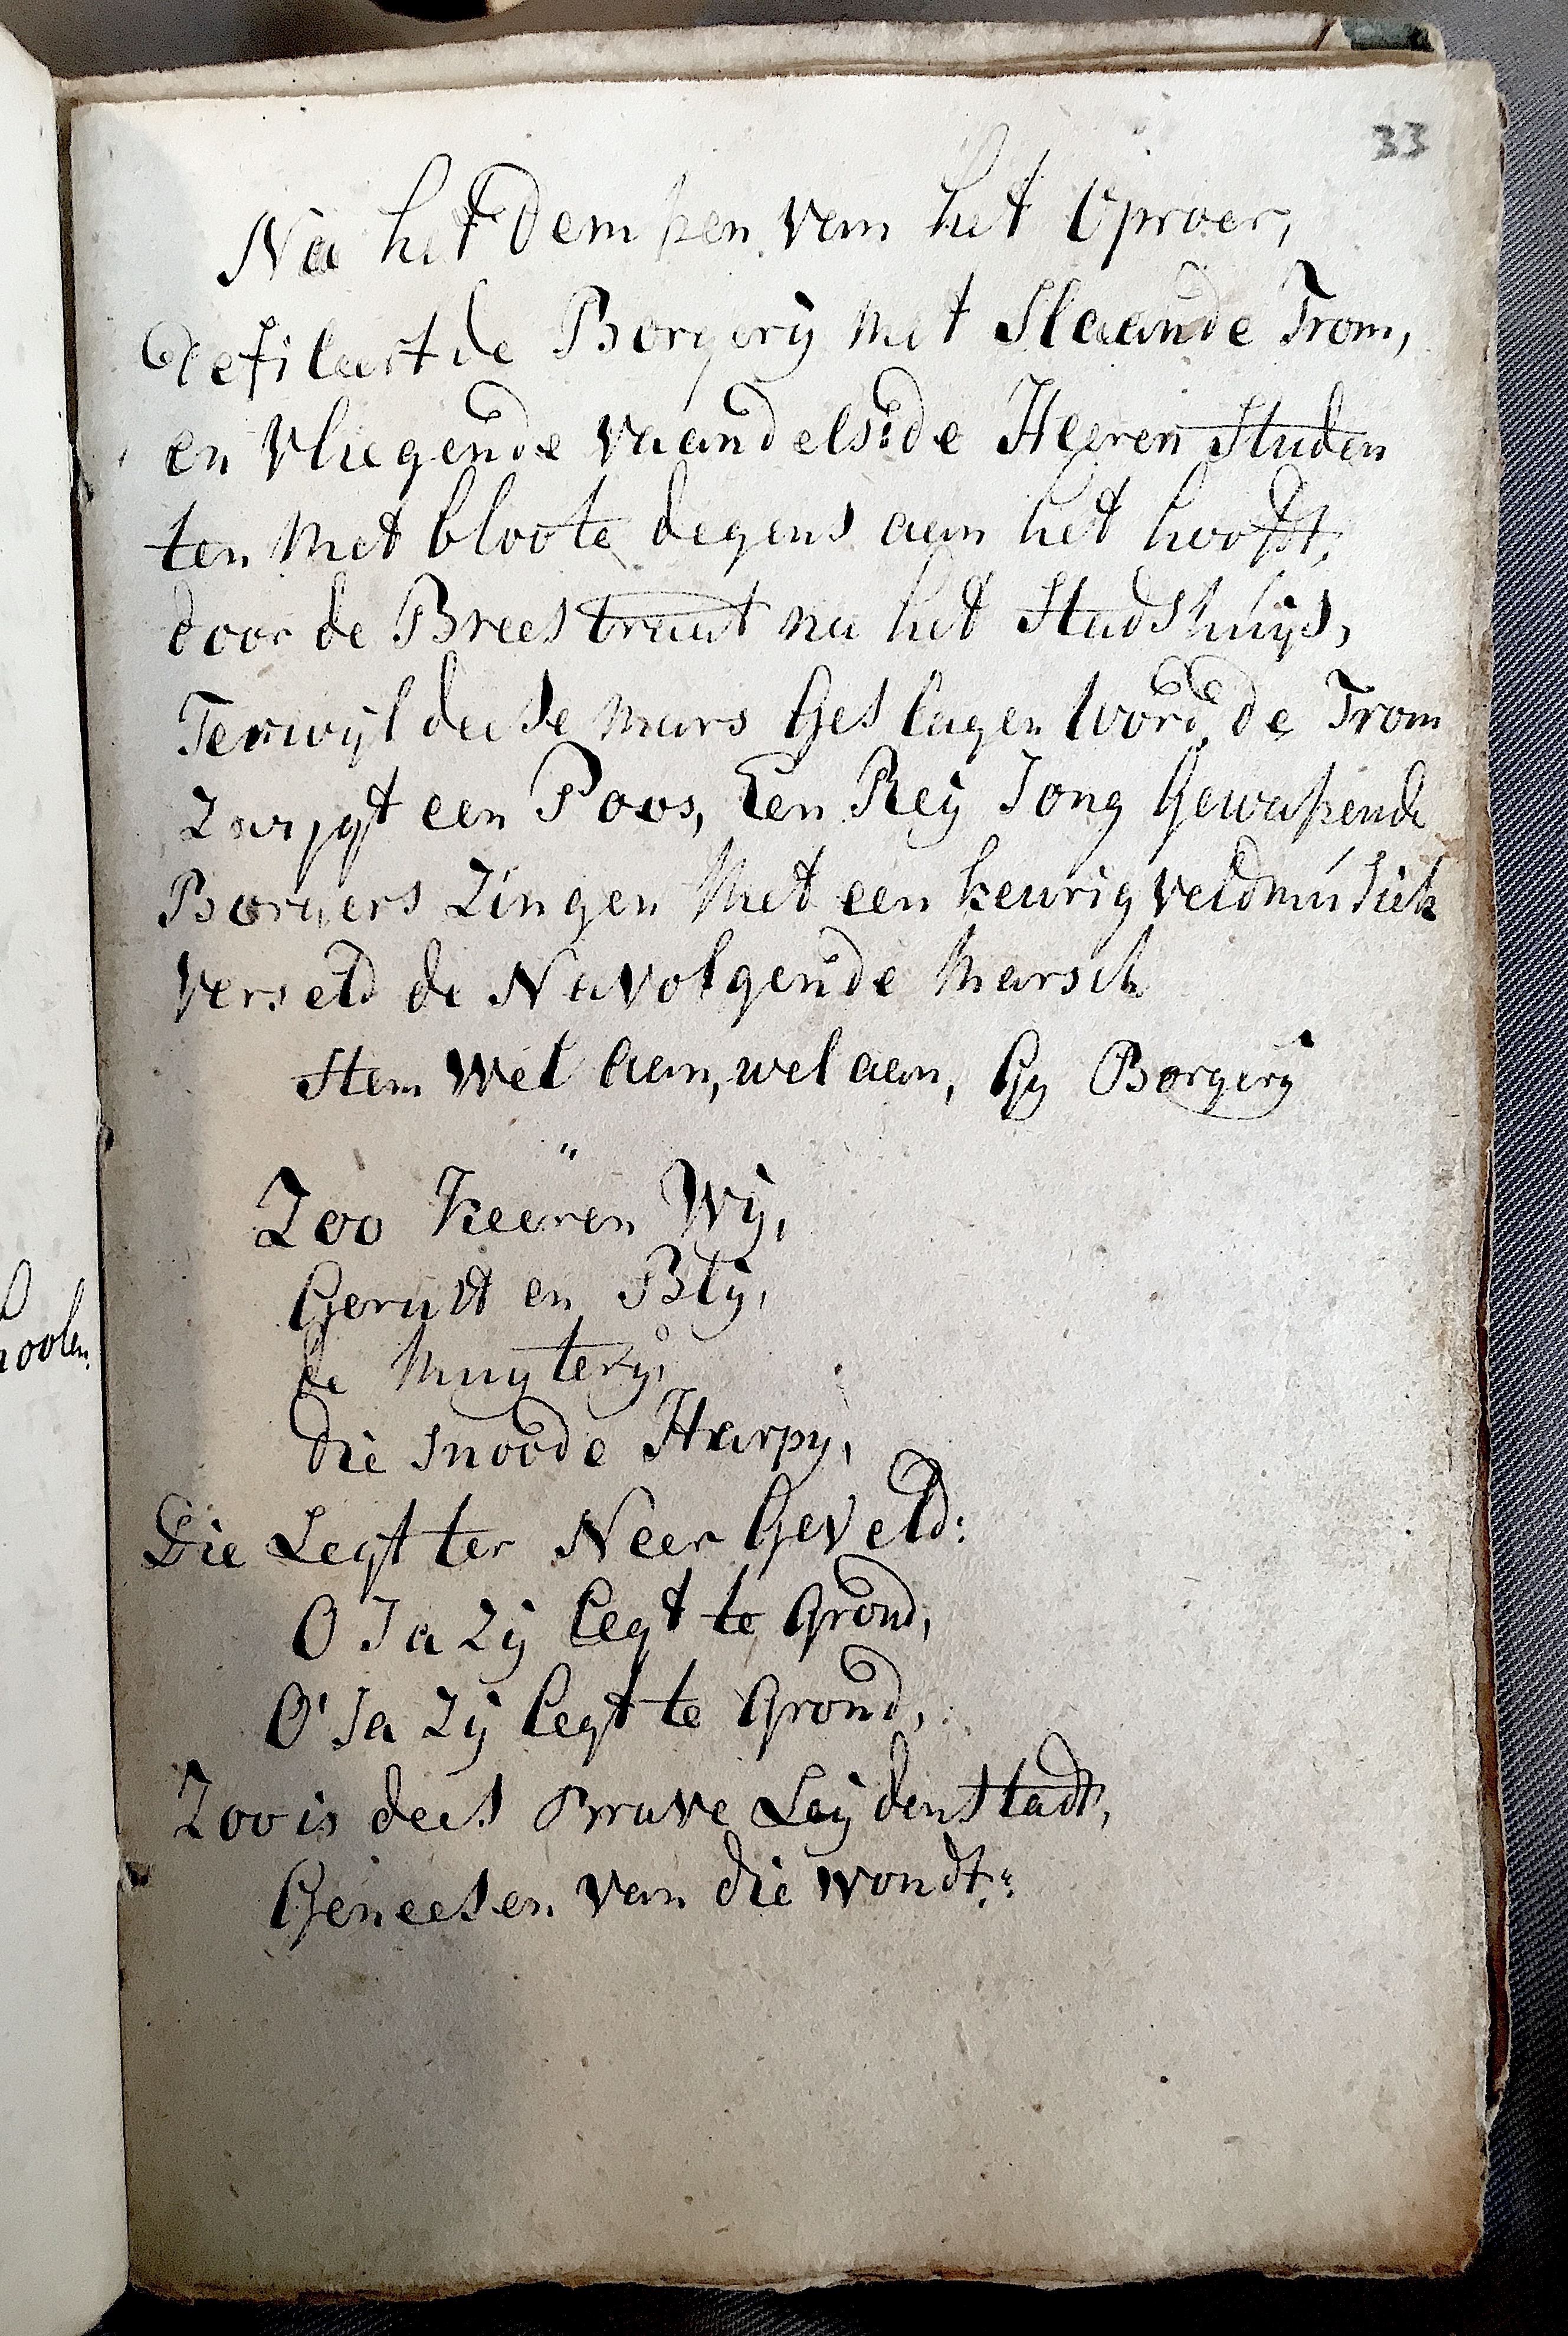 33
Na het dempen van het Oproer,
defileert de Borgerij met slaande Trom,
en vliegende vaandels: de Heeren Studen
ten met bloote degens aan het hooft,
door de Breestraat na het Stadshuijs,
Terwijl deese mars Geslagen word, de Trom
Zwijgt een Poos, Een Reij Jong Gewapende
Borgers Zingen met een keurig veldmúsiek
verseld de Navolgende marsch
Stem wel aan, wel aan, Gij Borgerij
Zoo Keeren Wij,
Gerust en Blij,
de muyterij,
die snoode Harpy,
Die Legt ter Neer Geveld:
O Ja Zij legt te Grond,
O' Ja Zij legt te Grond,
Zoo is dees Brave Leijden stadt,
Geneesen van die wondt: